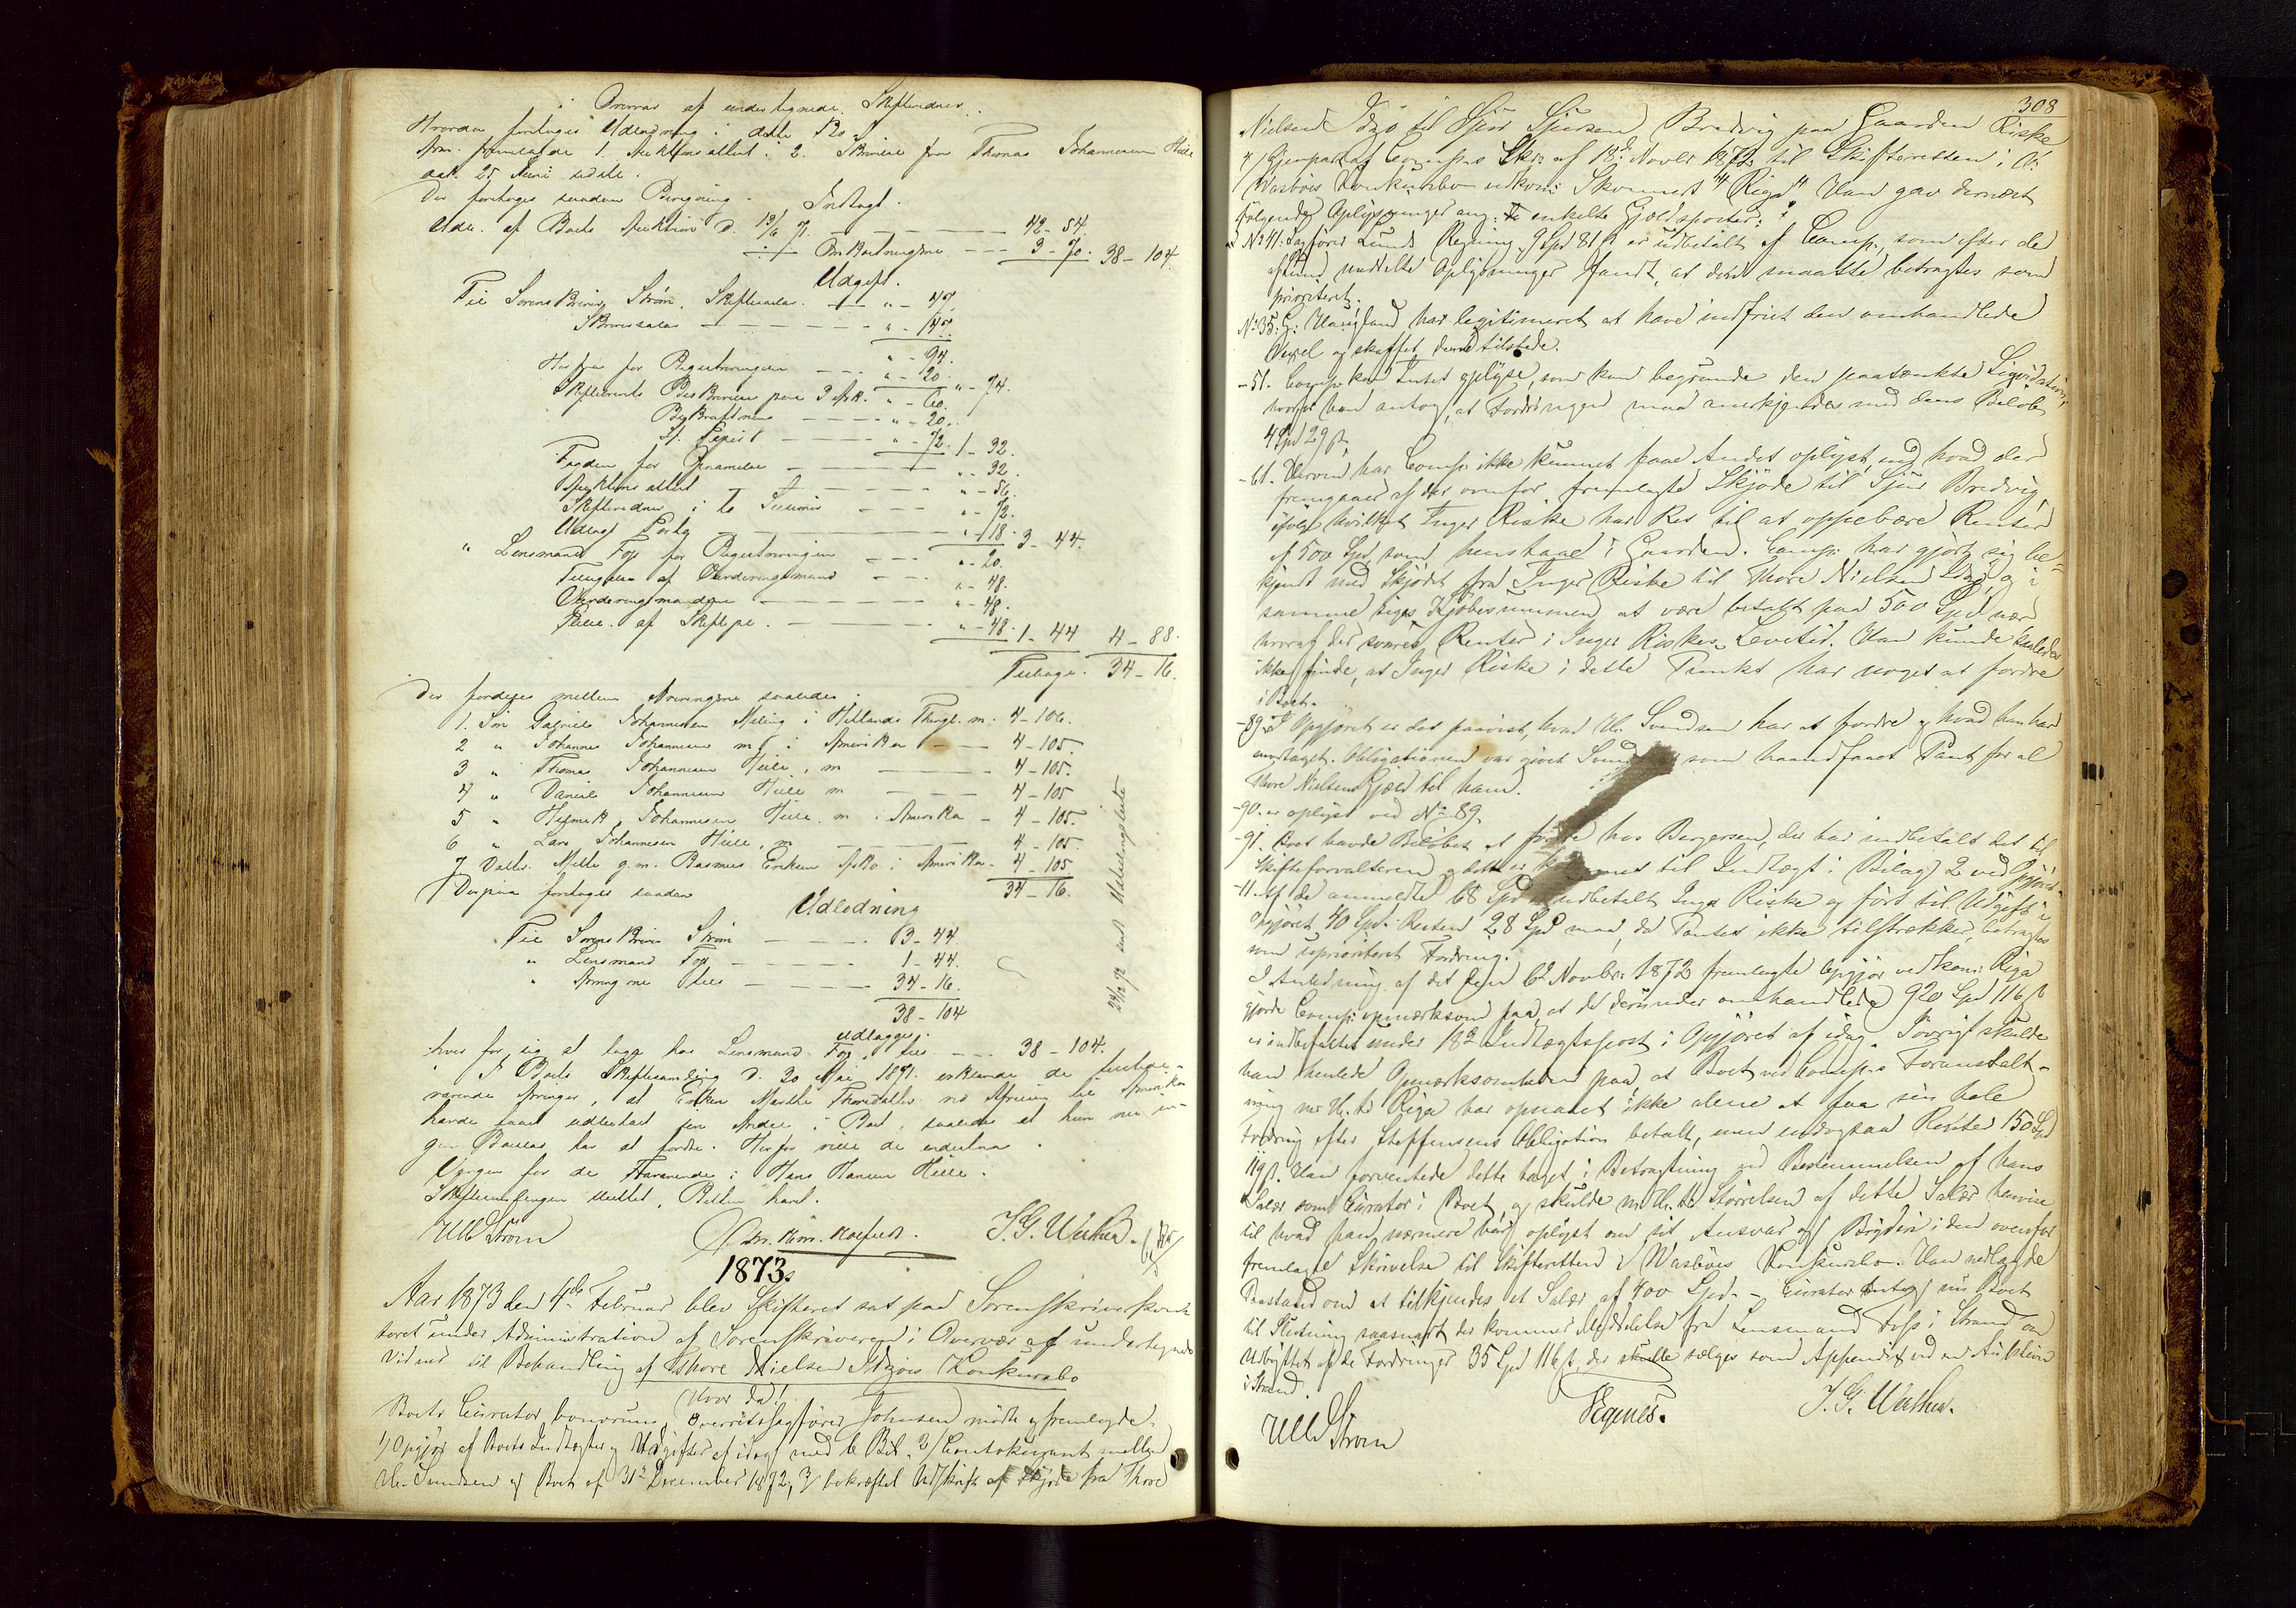 i Overvær af undertegnede Skiftevidner.
Hvorda foretoges Udlodning i dette Bo.
Adm. fremlagde 1. Auktions attest. 2. Skrivelse fra Thomas Johannesen Hiele
dat. 25 Juni sidstl.
Der foretoges saadan Beregning.
Indtægt.
Udb. af Boets Auktion d. 13/6 71. 42 - 54.
÷ Omkostningerne 3 - 70. 38 - 104.
Udgift.
Til Sorenskriver Strøm. Skiftesalær " - 47.
Skriversalær " - 47.
" - 94.
Herfra for Registreringen " - 20. " - 74.
Skiftebrevets Beskrivelse paa 3 Ark. " - 60.
Bekræftelse " - 20.
St. Papir " - 72. 1 - 32.
Fogden for " - 32.
Auktions attest " - 56.
Skiftevidner i to Sessioner " - 72.
Udlagt Porto " - 18. 3 - 44.
" Lensmand Foss for Registreringen " - 20.
Tilsigelse af Vurderingsmænd " - 48.
Vurderingsmændene " - 48.
af Skifte " - 48. 1 - 44 4 - 88.
Tilbage 34 - 16.
der fordeles mellem Arvingerne saaledes:
1. Søn Gabriel Johannesen Meling i Hetlands Thingl. m. 4 - 106.
2 " Johannes Johannesen m. i Amerika 4 - 105.
3 " Thomas Johannesen Hiele, m 4 - 105.
4 " Daniel Johannesen Hiele m 4 - 105
5 " Helmik Johannesen Hiele. m. i Amerika - 4 - 105.
6 " Lars Johannesen Hiele, m 4 - 105
7 Datter Mette g. m. Rasmus Eriksen Aske i Amerika. 4 - 105
34 - 16.
Derpaa foretoges saadan
Udlodning
Til Sorenskriver Strøm 3 - 44.
" Lensmand Foss 1 - 44.
" Arvingerne 34 - 16.
38 - 104
24/2 73 Udskriftsattest
udlægges:
hver for sig at tage hos Lensmand Foss 38 - 104.
I Boets Skiftesamling d. 30 Mai 1871. erklærede de tilstede-
værende Arvinger, at Enken Marthe Thoresdatter ved Afreisen til Amerika
havde faaet udbetalt sin Andel i Boet, saaledes at hun nu in-
gen har at fordre. Herfor ville de indestaa.
Værgen for de Fraværende: Hans Hansen Hiele.
Skiftesamlingen sluttet. Retten hævet.
Ulb Strøm J. G. Werken.
1873.
Aar 1873 den 4de Februar blev Skifteret sat paa Sorenskriverkon-
toret under Administration af Sorenskriveren i Overvær af undertegnede
Vidner til Behandling af Thore Nielsen Idsøs Konkursbo
(Hvor da!
Boets Curator bonorum, Overretssagfører Johnsen mødte og fremlagde:
1/ Opgjør af Boets Indtægter og Udgifter af idag med 6 Bil. 2/ Contokurant mellem
Hr. Svendsen og Boet af 31te December 1872, 3/ bekræftet Udskrift af Skjøde fra Thore
308
Nielsen Idsø til Sjur Sjursen Bredvig paa Gaarden Riske
4/ Gjenpart af Comp.s Skr. af 18de Novbr 1872 til Skifteretten i O.
Wasbøes Konkursbo vedkom: Skonnert "Riga". Han gav dernæst
følgende Oplysninger ang: de enkelte Gjeldsposter:
ad No 41. Sagfører Lunds Regning 9 Spd 81 ß er udbetalt af Comp., som efter de
af Lund meddelte Oplysninger fandt, at den maatte betragtes som
prioriteret.
No 35. G. Haugland har legitimeret at have indfriet den omhandlede
Vexel og skaffet denne tilstede.
- 51. Comp. kan Intet oplyse, som kan begrunde den paatænkte Liqvidation,
hvorfor han antog, at Fordringen maa anerkjendes med dens Beløb
4 Spd 29 ß.
- 61. Herom har Comp. ikke kunnet faae Andet oplyst, end hvad der
fremgaaer af det ovenfor fremlagte Skjøde til Sjur Bredvig,
ifølge hvilket Inger Riske har Ret til at oppebære Renter
af 500 Spd, som henstaae i Gaarden. Comp. har gjort sig be-
kjendt med Skjødet fra Inger Riske til Thore Nielsen Idsø og i
samme siges Kjøbesummen at være betalt paa 500 Spd nær
hvoraf der svares Renter i Inger Riskes Levetid. Han kunde saaledes
ikke finde, at Inger Riske i dette Punkt har noget at fordre
i Boet.
- 89. I Opgjøret er det paavist, hvad Hr. Svendsen har at fordre og hvad han har
modtaget. Obligationen var givet Svendsen som haandfaaet Pant for al
Thore Nielsens Gjæld til ham.
- 90. er oplyst ved No 89.
- 91. Boet havde Beløbet at fordre hos Bergersen, der har indbetalt det til
Skifteforvalteren og dette er kommet til Indtægt i Bilag 2 ved Opgjøret.
- 11. Af de anmeldte 68 Spd er udbetalt Inger Riske og ført til Udgift i
Opgjøret 40 Spd. Resten 28 Spd maa, da Pantet ikke tilstrækker, betragtes
som uprioriteret Fordring.
I Anledning af det den 6te Novbr. 1872 fremlagte Opgjør vedkom: Riga
gjorde Comp. opmærksom paa, at de derunder omhandlede 920 Spd 116 ß
er indbefattet under 18de Indtægtspost i Opgjøret af idag. Iøvrigt skulde
han henlede Opmærksomheden paa, at Boet ved Comp.s Foranstalt-
ning m. H. til Riga har opnaaet ikke alene at faa sin hele
Fordring efter Steffensens Obligation betalt, men endogsaa Renter 150 Spd
119 ß. Han forventede dette taget i Betragtning ved Bestemmelsen af hans
Salær som Curator i Boet, og skulde m. H. til Størrelsen af dette Salær henvise
til hvad han nærmere har oplyst om sit Ansvar og Byrden i den ovenfor
fremlagte Skrivelse til Skifteretten i Wasbøes Konkursbo. Han nedlagde
Paastand om at tilkjendes et Salær af 400 Spd. - Curator antog nu Boet
til Slutning saasnart der kommer Meddelelse fra Lensmand Foss i Strand om
Udbyttet af de Fordringer 35 Spd 116 ß, der skulle sælges som Appendix ved en Auktion
i Strand.
Ulb Strøm Egenes. J. G. Werken.